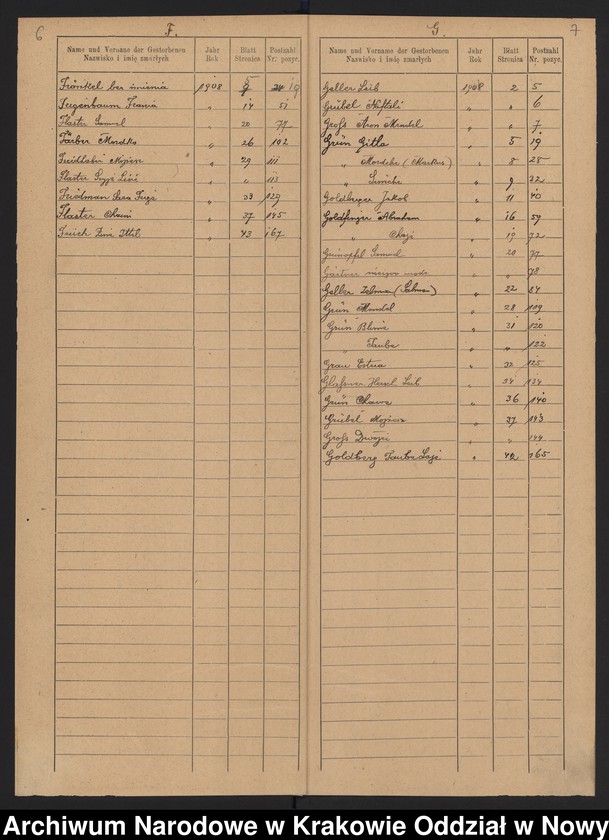 6
F.
Name und Vorname der Gestorbenen
Nazwisko i imię zmarłych
Jahr
Rok
Blatt
Stronica
Postzahl
Nr. pozyc.
Fränkel bez imienia 1908 5 19
Feigenbaum " 14 51
Flaster Samuel " 20 77
Färber Mordka " 26 102
" 29 111
Flaster " 113
Friedman Sara " 33 129
Flaster " 37 145
Ittel " 43 167
G.
7
Name und Vorname der Gestorbenen
Nazwisko i imię zmarłych
Jahr
Rok
Blatt
Stronica
Postzahl
Nr. pozyc.
Geller Leib 1908 2 5
Grübel Naftali " " 6
Groß Aron Mendel " " 7
Grün Gitla " 5 19
" Mordche (Markus) " 8 28
" Simche " 9 32
Goldberger Jakob " 11 40
Goldfinger Abraham " 16 59
" Chaje " 19 72
Samuel " 20 77
Gärtner " " 78
Geller Zelman (Salman) " 22 84
Grün Mendel " 28 109
Grün Blime " 31 120
" Taube " " 122
Grau Estera " 32 125
Hersch Leib " 34 134
Grün Chawe " 36 140
Grübel Mojżesz " 37 143
Groß Dwojre " " 144
Goldberg Taube " 42 165
Archiwum Narodowe w Krakowie Oddział w Nowy